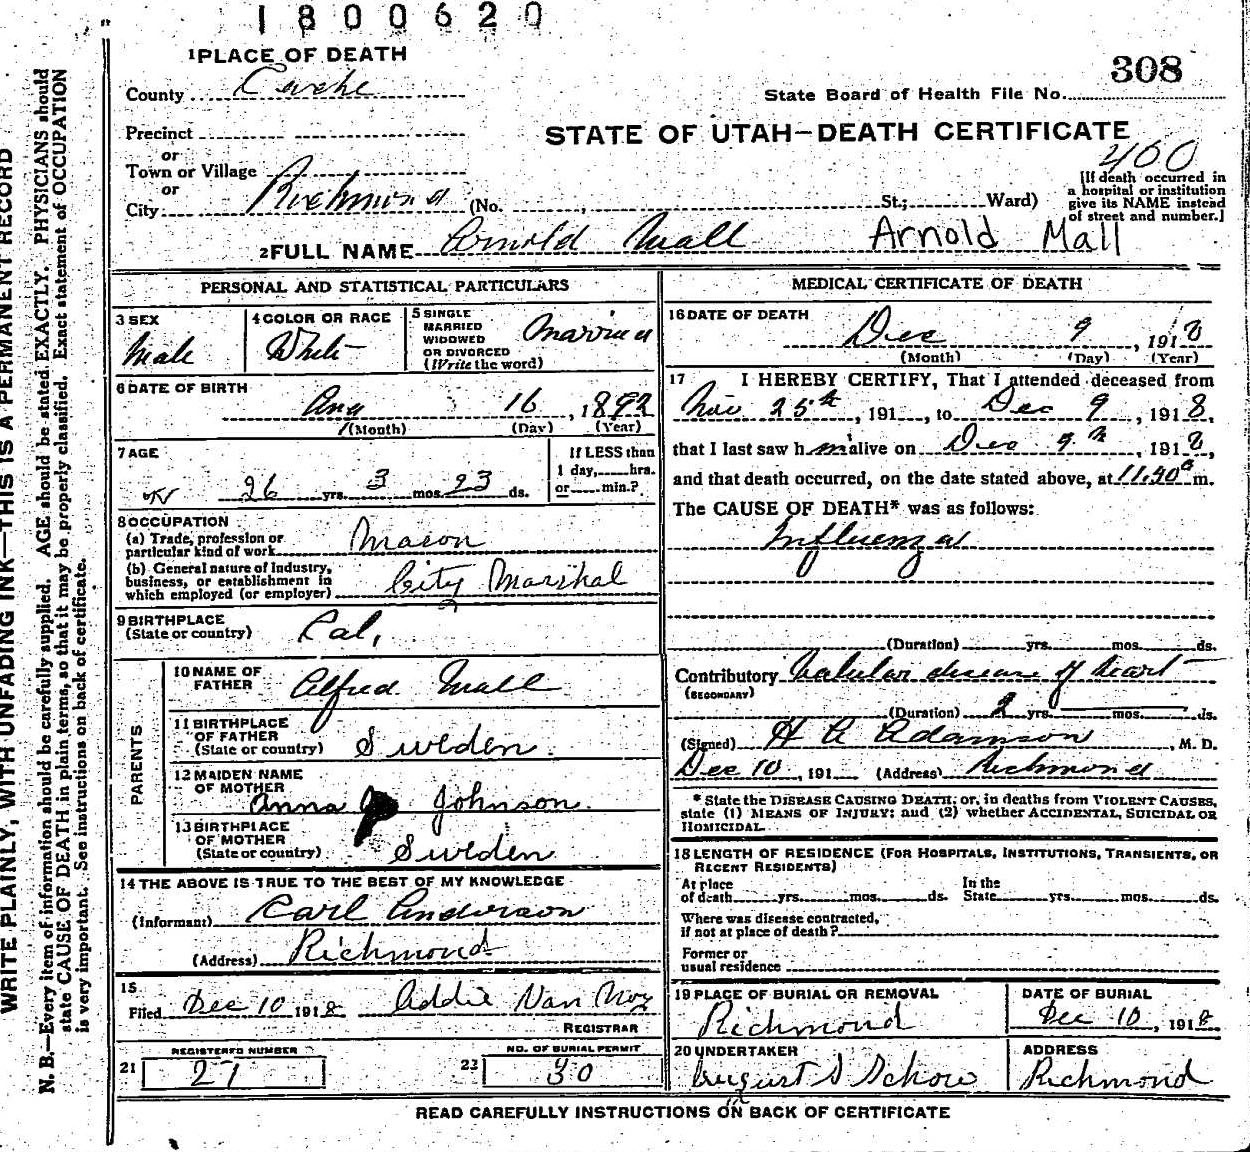 1800620
1 PLACE OF DEATH
308
County Cache
State Board of Health File No.
Precinct
STATE OF UTAH—DEATH CERTIFICATE
or
400
Town or Village
[If death occurred in
a hospital or institution
give its NAME instead
of street and number.]
or
City Richmond (No. , St.; Ward)
2 FULL NAME Arnold Mall Arnold Mall
PERSONAL AND STATISTICAL PARTICULARS
3 SEX
Male
4 COLOR OR RACE
White
5 SINGLE
MARRIED
WIDOWED
OR DIVORCED
(Write the word)
Married
6 DATE OF BIRTH
Aug 16, 1892
(Month) (Day) (Year)
7 AGE
26 yrs. 3 mos. 23 ds.
If LESS than
1 day, hrs.
or min.?
8 OCCUPATION
(a) Trade, profession or
particular kind of work Mason
(b) General nature of Industry,
business, or establishment in
which employed (or employer) City Marshal
9 BIRTHPLACE
(State or country) Cal,
PARENTS
10 NAME OF
FATHER Alfred Mall
11 BIRTHPLACE
OF FATHER
(State or country) Sweden.
12 MAIDEN NAME
OF MOTHER
Anna Johnson.
13 BIRTHPLACE
OF MOTHER
(State or country) Sweden
14 THE ABOVE IS TRUE TO THE BEST OF MY KNOWLEDGE
(Informant) Carl Anderson
(Address) Richmond
15
Filed Dec 10 1918 Addie Van Noy
REGISTRAR
21 REGISTERED NUMBER
27
22 NO. OF BURIAL PERMIT
30
MEDICAL CERTIFICATE OF DEATH
16 DATE OF DEATH
Dec 9, 1918
(Month) (Day) (Year)
17 I HEREBY CERTIFY, That I attended deceased from
Nov 25th, 191 , to Dec 9, 1918,
that I last saw him alive on Dec 9th, 1918,
and that death occurred, on the date stated above, at 11.40 a m.
The CAUSE OF DEATH* was as follows:
Influenza
(Duration) yrs. mos. ds.
Contributory Valvular disease of heart
(SECONDARY)
(Duration) 2 yrs. mos. ds.
(Signed) H A Adamson, M. D.
Dec 10, 191 (Address) Richmond
* State the DISEASE CAUSING DEATH; or, in deaths from VIOLENT CAUSES,
state (1) MEANS OF INJURY; and (2) whether ACCIDENTAL, SUICIDAL OR
HOMICIDAL.
18 LENGTH OF RESIDENCE (FOR HOSPITALS, INSTITUTIONS, TRANSIENTS, OR
RECENT RESIDENTS)
At place
of death yrs. mos. ds.
In the
State yrs. mos. ds.
Where was disease contracted,
if not at place of death?
Former or
usual residence
19 PLACE OF BURIAL OR REMOVAL
Richmond
DATE OF BURIAL
Dec 10, 1918
20 UNDERTAKER
August S Schow
ADDRESS
Richmond
READ CAREFULLY INSTRUCTIONS ON BACK OF CERTIFICATE
WRITE PLAINLY, WITH UNFADING INK—THIS IS A PERMANENT RECORD
N. B.—Every item of information should be carefully supplied. AGE should be stated EXACTLY. PHYSICIANS should
state CAUSE OF DEATH in plain terms, so that it may be properly classified. Exact statement of OCCUPATION
is very important. See instructions on back of certificate.